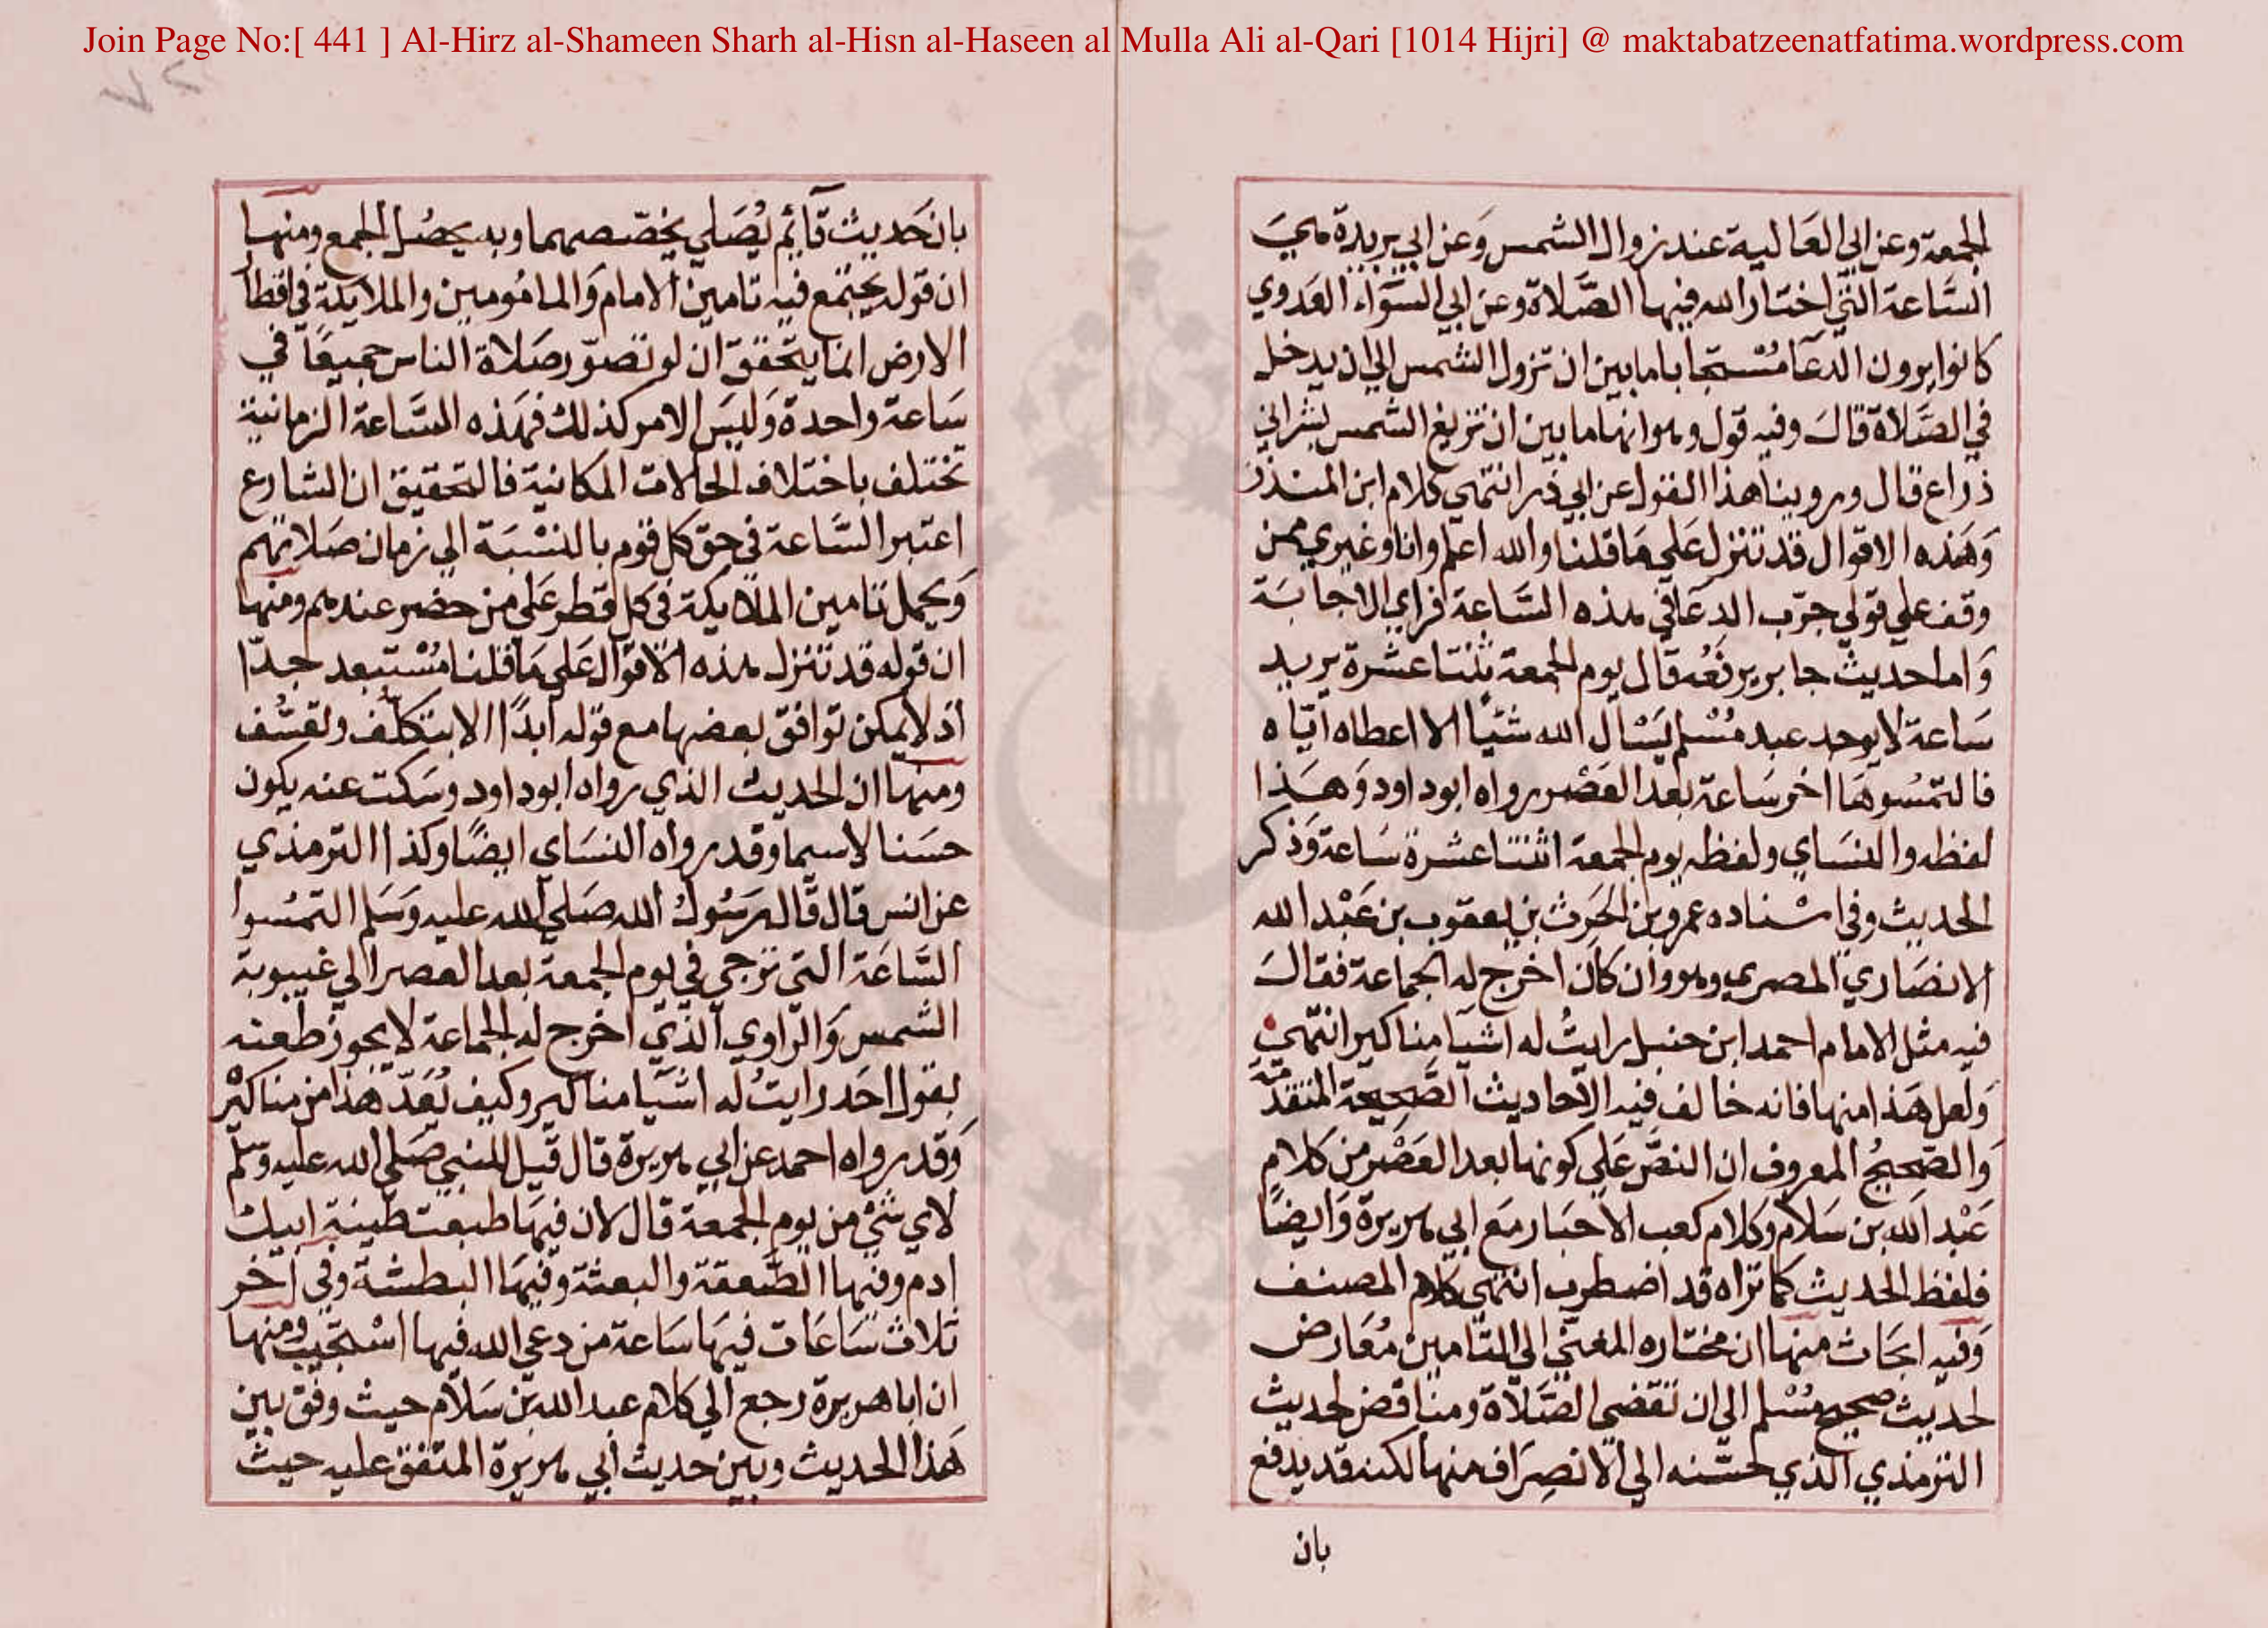 Join Page No:[ 441 ] Al-Hirz al-Shameen Sharh al-Hisn al-Haseen al Mulla Ali al-Qari [1014 Hijri] @ maktabatzeenatfatima.wordpress.com
الجمعة وعن ابي العالية عند زوال الشمس وعن ابي بريدة هي
الساعة التي اختار الله فيها الصلاة وعن ابي السوار العدوي
كانوا يرون الدعا مستجابا ما بين ان تزول الشمس الي ان يدخل
في الصلاة قال وفيه قول وهو انها ما بين ان تزيغ الشمس بشبر الي
ذراع قال وروينا هذا القول عن ابي ذر انتهي كلام ابن المنذر
وهذه الاقوال قد تنزل علي ما قلنا والله اعلم وانا وغيري ممن
وقف علي قولي جرب الدعا في هذه الساعة فراي الاجابة
واما حديث جابر يرفعه قال يوم الجمعة ثنتا عشرة يريد
ساعة لا يوجد عبد مسلم يسال الله شيا الا اعطاه اياه
فالتمسوها اخر ساعة بعد العصر رواه ابو داود وهذا
لفظه والنساي ولفظه يوم الجمعة اثنتا عشرة ساعة وذكر
الحديث وفي اسناده عمرو بن الحرث بن يعقوب بن عبد الله
الانصاري المصري وهو وان كان اخرج له الجماعة فقال
فيه مثل الامام احمد ابن حنبل رايت له اشيا مناكير انتهي
ولعل هذا منها فانه خالف فيه الاحاديث الصحيحة المتقدمة
والصحيح المعروف ان النص علي كونها بعد العصر من كلام
عبد الله بن سلام وكلام كعب الاحبار مع ابي هريرة وايضا
فلفظ الحديث كما تراه قد اضطرب انتهي كلام المصنف
وفيه ابحاث منها ان مختاره المغيي الي التامين معارض
لحديث صحيح مسلم الي ان تقضي الصلاة ومناقض لحديث
الترمذي الذي حسنه الي الانصراف منها لكنه قد يدفع
بان
بان حديث قايم يصلي يخصصهما وبه يحصل الجمع ومنها
ان قوله يجتمع فيه تامين الامام والمامومين والملايكة في اقطار
الارض انما يتحقق ان لو تصور صلاة الناس جميعا في
ساعة واحدة وليس الامر كذلك فهذه الساعة الزمانية
تختلف باختلاف الحالات المكانية فالتحقيق ان الشارع
اعتبر الساعة في حق كل قوم بالنسبة الي زمان صلاتهم
ويحمل تامين الملايكة في كل قطر علي من حضر عندهم ومنها
ان قوله قد تنزل هذه الاقوال علي ما قلنا مستبعد جدا
اذ لا يمكن توافق بعضها مع قوله ابدا الا بتكلف وتعسف
ومنها ان الحديث الذي رواه ابو داود وسكت عنه يكون
حسنا لا سيما وقد رواه النساي ايضا وكذا الترمذي
عن انس قال قال رسول الله صلي الله عليه وسلم التمسوا
الساعة التي ترجي في يوم الجمعة بعد العصر الي غيبوبة
الشمس والراوي الذي اخرج له الجماعة لا يجوز طعنه
بقول احد رايت له اشيا مناكير وكيف يعد هذا من مناكير
وقد رواه احمد عن ابي هريرة قال قيل للنبي صلي الله عليه وسلم
لاي شي من يوم الجمعة قال لان فيها طبعت طينة ابيك
ادم وفيها الصعقة والبعثة وفيها البطشة وفي اخر
ثلاث ساعات فيها ساعة من دعي الله فيها استجيب ومنها
ان ابا هريرة رجع الي كلام عبد الله بن سلام حيث وفق بين
هذا الحديث وبين حديث ابي هريرة المتفق عليه حيث